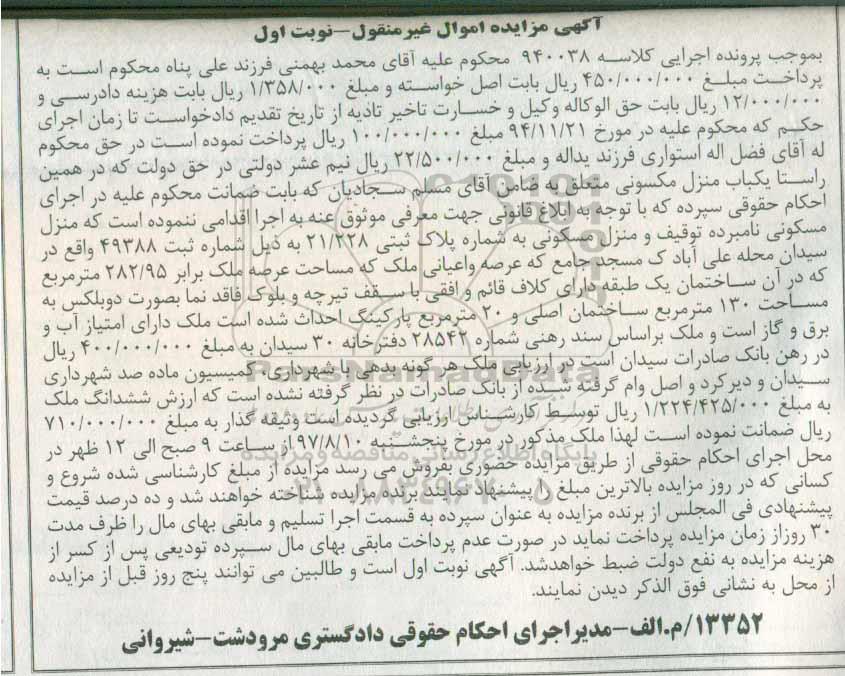 آگهی مزایده اموال غیرمنقول-نوبت اول
بموجب پرونده اجرایی کلاسه ۹۴۰۰۳۸ محکوم علیه آقای محمد بهمنی فرزند علی پناه محکوم است به
پرداخت مبلغ ۴۵۰/۰۰۰/۰۰۰ ریال بابت اصل خواسته و مبلغ ۱/۳۵۸/۰۰۰ ریال بابت هزینه دادرسی و
۱۲/۰۰۰/۰۰۰ ریال بابت حق الوکاله وکیل و خسارت تاخیر تادیه از تاریخ تقدیم دادخواست تا زمان اجرای
حکم که محکوم علیه در مورخ ۹۴/۱۱/۲۱ مبلغ ۱۰۰/۰۰۰/۰۰۰ ریال پرداخت نموده است در حق محکوم
له آقای فضل اله استواری فرزند یداله و مبلغ ۲۲/۵۰۰/۰۰۰ ریال نیم عشر دولتی در حق دولت که در همین
راستا یکباب منزل مکسونی متعلق به ضامن آقای مسلم سجادیان که بابت ضمانت محکوم علیه در اجرای
احکام حقوقی سپرده که با توجه به ابلاغ قانونی جهت معرفی موثوق عنه به اجرا اقدامی ننموده است که منزل
مسکونی نامبرده توقیف و منزل مسکونی به شماره پلاک ثبتی ۲۱/۲۲۸ به ذیل شماره ثبت ۴۹۳۸۸ واقع در
سیدان محله علی آباد ک مسجد جامع که عرصه واعیانی ملک که مساحت عرصه ملک برابر ۲۸۲/۹۵ مترمربع
که در آن ساختمان یک طبقه دارای کلاف قائم و افقی با سقف تیرچه و بلوک فاقد نما بصورت دوبلکس به
مساحت ۱۳۰ مترمربع ساختمان اصلی و ۲۰ مترمربع پارکینگ احداث شده است ملک دارای امتیاز آب و
برق و گاز است و ملک براساس سند رهنی شماره ۲۸۵۴۲ دفترخانه ۳۰ سیدان به مبلغ ۴۰۰/۰۰۰/۰۰۰ ریال
در رهن بانک صادرات سیدان است در ارزیابی ملک هر گونه بدهی با شهرداری، کمیسیون ماده صد شهرداری
سیدان و دیرکرد و اصل وام گرفته شده از بانک صادرات در نظر گرفته نشده است که ارزش ششدانگ ملک
به مبلغ ۱/۲۲۴/۴۲۵/۰۰۰ ریال توسط کارشناس ارزیابی گردیده است وثیقه گذار به مبلغ ۷۱۰/۰۰۰/۰۰۰
ریال ضمانت نموده است لهذا ملک مذکور در مورخ پنجشنبه ۹۷/۸/۱۰ از ساعت ۹ صبح الی ۱۲ ظهر در
محل اجرای احکام حقوقی از طریق مزایده حضوری بفروش می رسد مزایده از مبلغ کارشناسی شده شروع و
کسانی که در روز مزایده بالاترین مبلغ را پیشنهاد نمایند برنده مزایده شناخته خواهند شد و ده درصد قیمت
پیشنهادی فی المجلس از برنده مزایده به عنوان سپرده به قسمت اجرا تسلیم و مابقی بهای مال را ظرف مدت
۳۰ روزاز زمان مزایده پرداخت نماید در صورت عدم پرداخت مابقی بهای مال سپرده تودیعی پس از کسر از
هزینه مزایده به نفع دولت ضبط خواهدشد. آگهی نوبت اول است و طالبین می توانند پنج روز قبل از مزایده
از محل به نشانی فوق الذکر دیدن نمایند.
۱۳۳۵۲/م.الف-مدیراجرای احکام حقوقی دادگستری مرودشت-شیروانی
ParsNamadData
پایگاه اطلاع رسانی مناقصه و مزایده